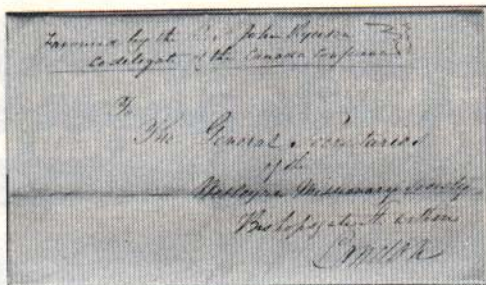 Favoured by the Rev. John Ryerson
Codelegate of the Canada Conference
To
The General Secretaries
of the
Wesleyan Missionary Society
Bishopsgate St.
London